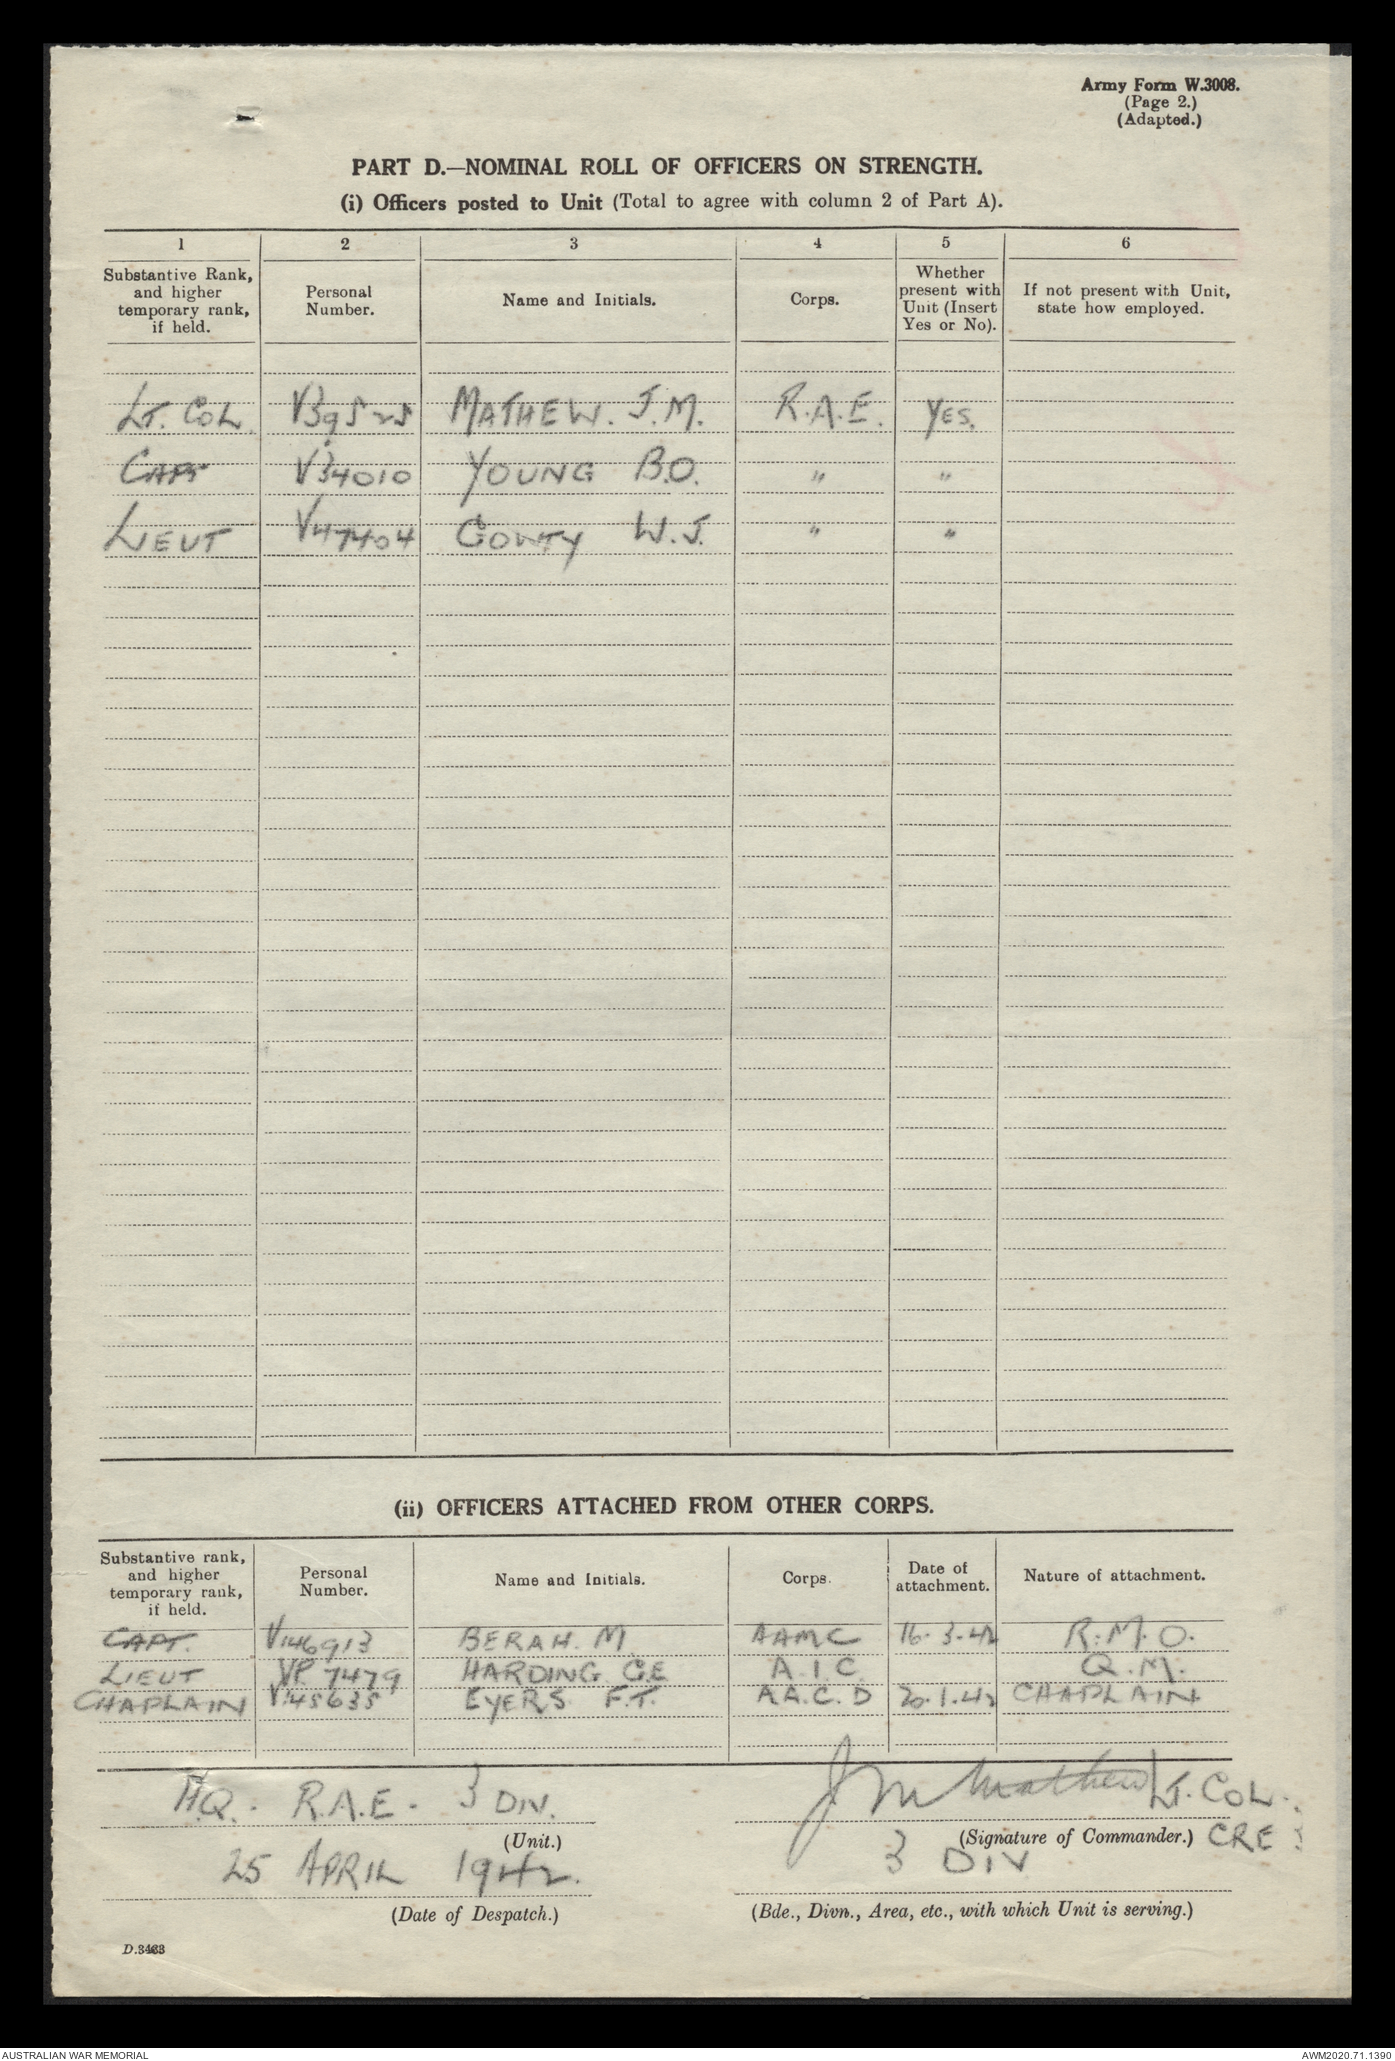 Army Form W.3008.
(Page 2.)
(Adapted.)
PART D.—NOMINAL ROLL OF OFFICERS ON STRENGTH.
(i) Officers posted to Unit (Total to agree with column 2 of Part A).
1 2 3 4 5 6
Substantive Rank, and higher temporary rank, if held. Personal Number. Name and Initials. Corps. Whether present with Unit (Insert Yes or No). If not present with Unit, state how employed.
LT. COL. V39525 MATHEW. J.M. R.A.E. YES.
CAPT V34010 YOUNG B.O. " "
LIEUT V47404 GOWTY W.J. " "
(ii) OFFICERS ATTACHED FROM OTHER CORPS.
Substantive rank, and higher temporary rank, if held. Personal Number. Name and Initials. Corps. Date of attachment. Nature of attachment.
CAPT. V146913 BERAH. M AAMC 16.3.42 R.M.O.
LIEUT VP 7479 HARDING G.E A.I.C. Q.M.
CHAPLAIN V145635 EYERS F.T. A.A.C.D 20.1.42 CHAPLAIN
H.Q. R.A.E. 3 DIV. J M Mathew LT. COL.
(Unit.) (Signature of Commander.) CRE 3
25 APRIL 1942. 3 DIV
(Date of Despatch.) (Bde., Divn., Area, etc., with which Unit is serving.)
D.3463
AUSTRALIAN WAR MEMORIAL AWM2020.71.1390